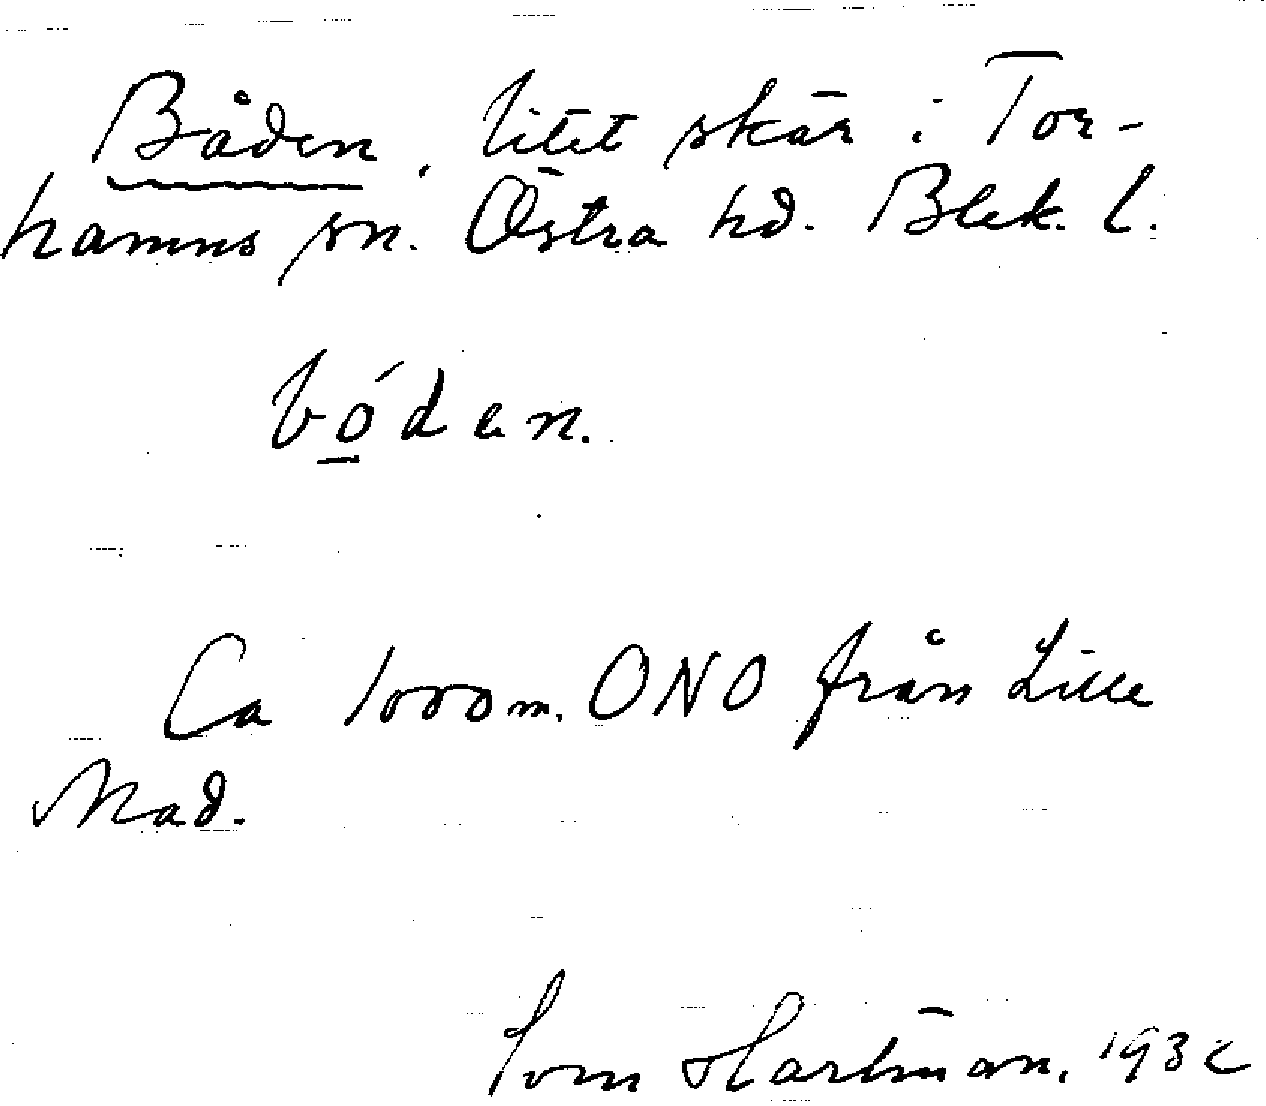 Båden, litet skär i Tor-
hamns sn. Östra hd. Blek. l.
bóden.
Ca 1000 m. ONO från Lille
Mad.
Hartman, 193